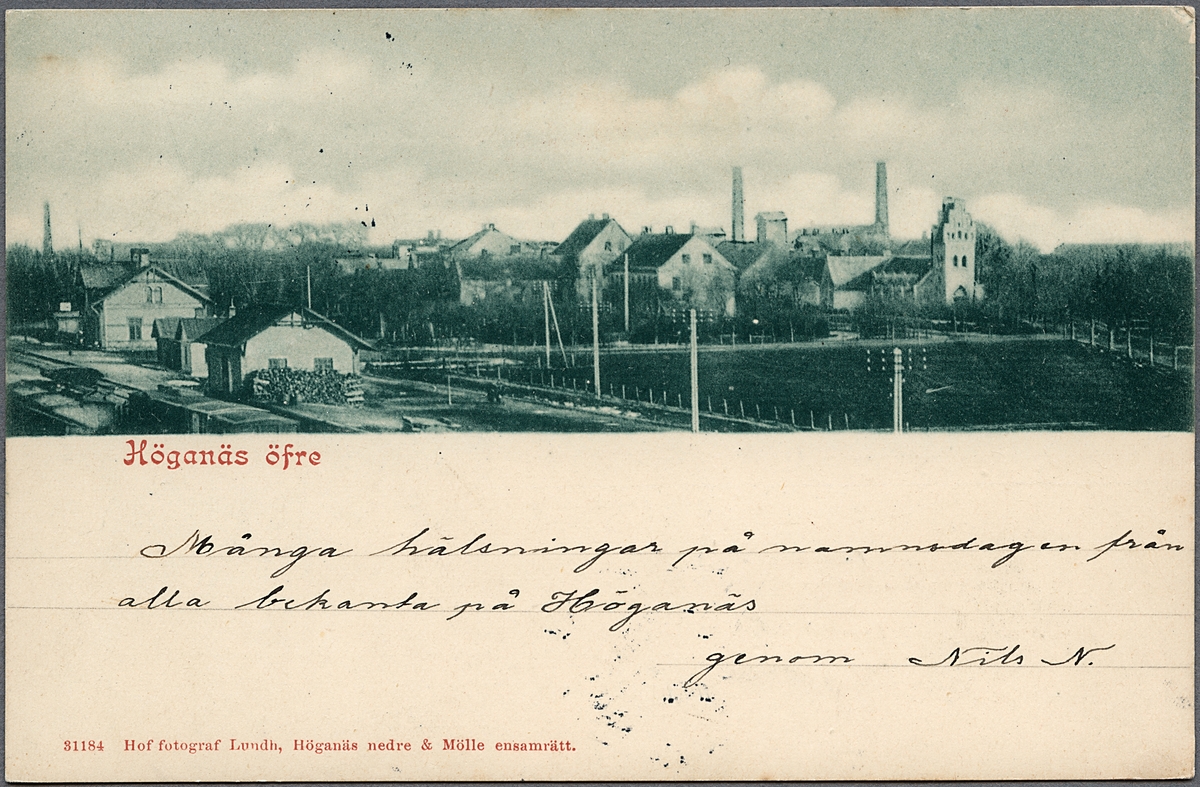 Höganäs öfre
Många hälsningar på namnsdagen från
alla bekanta på Höganäs
genom Nils N.
31184 Hof fotograf Lundh, Höganäs nedre & Mölle ensamrätt.